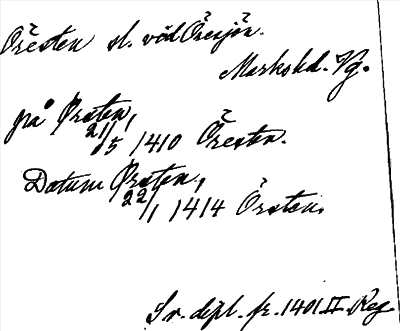 Öresten sl. vid Öresjön.
Markshd. Vg.
på Ørsten,
21/5 1410 Öresten.
Datum Ørsten,
22/1 1414 Örsten.
Sv. dipl. fr. 1401 II Reg.